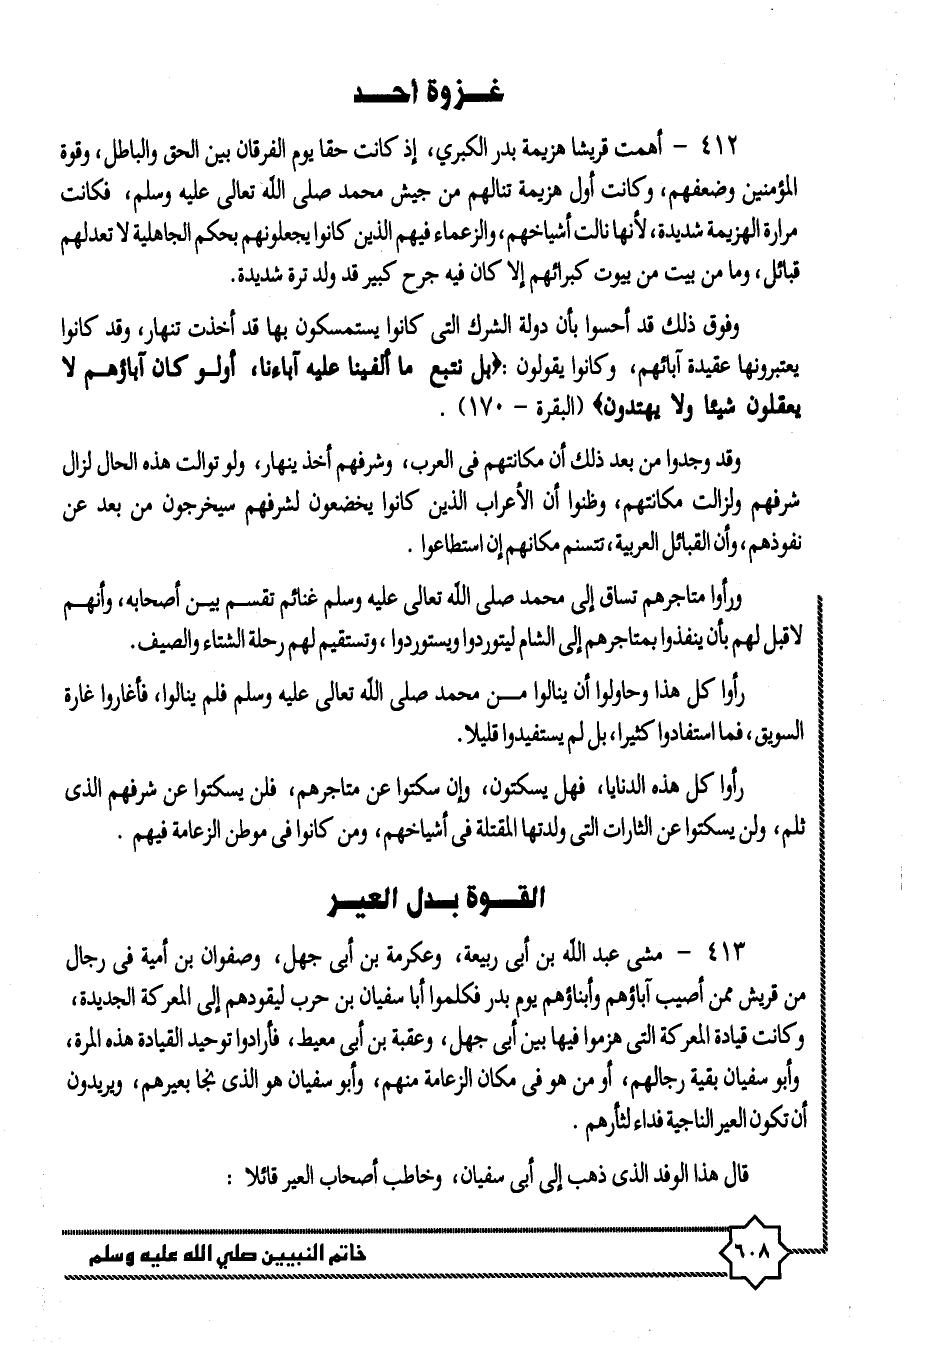 غـزوة أحـد
٤١٢ – أهمت قريشا هزيمة بدر الكبري، إذ كانت حقا يوم الفرقان بين الحق والباطل، وقوة
المؤمنين وضعفهم، وكانت أول هزيمة تنالهم من جيش محمد صلى الله تعالى عليه وسلم، فكانت
مرارة الهزيمة شديدة، لأنها نالت أشياخهم، والزعماء فيهم الذين كانوا يجعلونهم بحكم الجاهلية لا تعدلهم
قبائل، وما من بيت من بيوت كبرائهم إلا كان فيه جرح كبير قد ولد ترة شديدة.
وفوق ذلك قد أحسوا بأن دولة الشرك التى كانوا يستمسكون بها قد أخذت تنهار، وقد كانوا
يعتبرونها عقيدة آبائهم، وكانوا يقولون :﴿بل نتبع ما ألفينا عليه آباءنا، أولـو كان آباؤهـم لا
يعقلون شيئا ولا يهتدون﴾ (البقرة – ١٧٠) .
وقد وجدوا من بعد ذلك أن مكانتهم فى العرب، وشرفهم أخذ ينهار، ولو توالت هذه الحال لزال
شرفهم ولزالت مكانتهم، وظنوا أن الأعراب الذين كانوا يخضعون لشرفهم سيخرجون من بعد عن
نفوذهم، وأن القبائل العربية، تتسنم مكانهم إن استطاعوا .
ورأوا متاجرهم تساق إلى محمد صلى الله تعالى عليه وسلم غنائم تقسم بيـن أصحابه، وأنهـم
لاقبل لهم بأن ينفذوا بمتاجرهم إلى الشام ليتوردوا ويستوردوا ، وتستقيم لهم رحلة الشتاء والصيف.
رأوا كل هذا وحاولوا أن ينالوا مـن محمد صلى الله تعالى عليه وسلم فلم ينالوا، فأغاروا غارة
السويق، فما استفادوا كثيرا، بل لم يستفيدوا قليلا.
رأوا كل هذه الدنايا، فهل يسكتون، وإن سكتوا عن متاجرهم، فلن يسكتوا عن شرفهم الذى
ثلم، ولن يسكتوا عن الثارات التى ولدتها المقتلة فى أشياخهم، ومن كانوا فى موطن الزعامة فيهم .
القـوة بـدل العيـر
٤١٣ – مشى عبد الله بن أبى ربيعة، وعكرمة بن أبى جهل، وصفوان بن أمية فى رجال
من قريش ممن أصيب آباؤهم وأبناؤهم يوم بدر فكلموا أبا سفيان بن حرب ليقودهم إلى المعركة الجديدة،
وكانت قيادة المعركة التى هزموا فيها بين أبى جهل، وعقبة بن أبى معيط، فأرادوا توحيد القيادة هذه المرة،
وأبو سفيان بقية رجالهم، أو من هو فى مكان الزعامة منهم، وأبو سفيان هو الذى نجا بعيرهم، ويريدون
أن تكون العير الناجية فداء لثأرهم .
قال هذا الوفد الذى ذهب إلى أبى سفيان، وخاطب أصحاب العير قائلا :
٦٠٨
خاتم النبيين صلي الله عليه وسلم